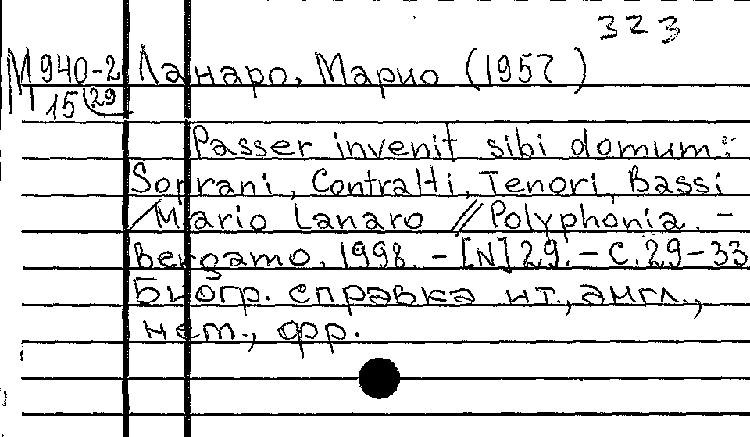 323
М 940-2 Ланаро, Марио (1957 )
15 29
Passer invenit sibi domum:
Soprani, Contralti, Tenori, Bassi
/Mario Lanaro // Polyphonia. -
Bergamo, 1998. - [N] 29. - С. 29-33
Биогр. справка ит., англ.,
нем., фр.